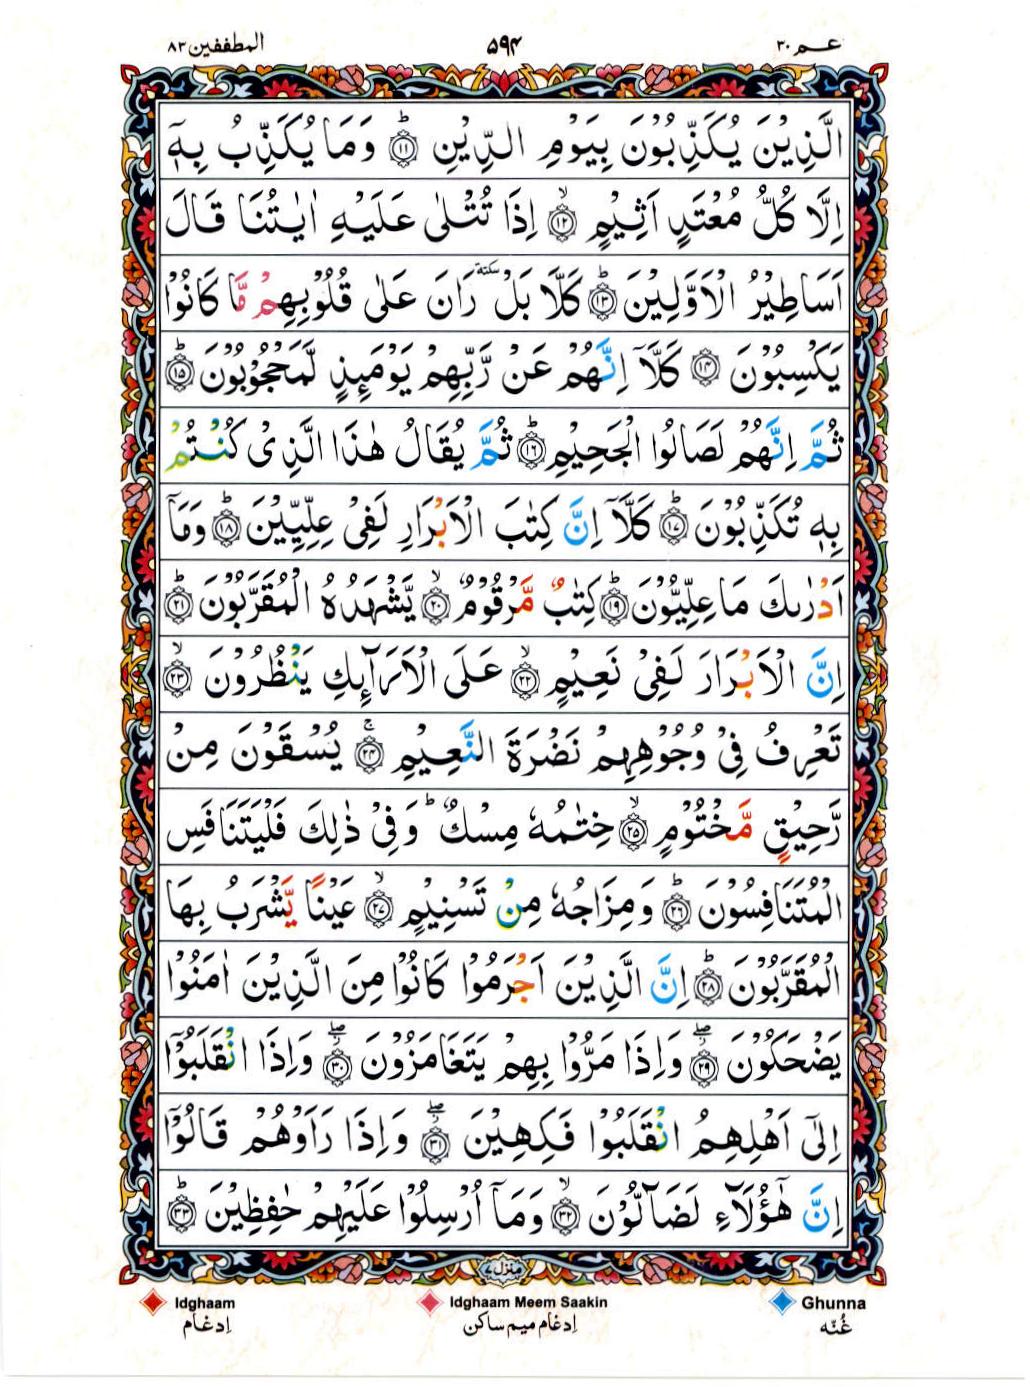 عـم ٣٠
۵۹۴
المطففين ٨٣
الَّذِيْنَ يُكَذِّبُوْنَ بِيَوْمِ الدِّيْنِ ؕ‏﴿۱۱﴾‏ وَمَا يُكَذِّبُ بِهٖۤ
اِلَّا كُلُّ مُعْتَدٍ اَثِيْمٍ ۙ‏﴿۱۲﴾‏ اِذَا تُتْلٰى عَلَيْهِ اٰيٰتُنَا قَالَ
اَسَاطِيْرُ الْاَوَّلِيْنَ ؕ‏﴿۱۳﴾‏ كَلَّا بَلْ سكتة رَانَ عَلٰى قُلُوْبِهِمْ مَّا كَانُوْا
يَكْسِبُوْنَ ‏﴿۱۴﴾‏ كَلَّاۤ اِنَّهُمْ عَنْ رَّبِّهِمْ يَوْمَىِٕذٍ لَّمَحْجُوْبُوْنَ ؕ‏﴿۱۵﴾‏
ثُمَّ اِنَّهُمْ لَصَالُوا الْجَحِيْمِ ؕ‏﴿۱۶﴾‏ ثُمَّ يُقَالُ هٰذَا الَّذِىْ كُنْتُمْ
بِهٖ تُكَذِّبُوْنَ ؕ‏﴿۱۷﴾‏ كَلَّاۤ اِنَّ كِتٰبَ الْاَبْرَارِ لَفِىْ عِلِّيِّيْنَ ؕ‏﴿۱۸﴾‏ وَمَاۤ
اَدْرٰىكَ مَا عِلِّيُّوْنَ ؕ‏﴿۱۹﴾‏ كِتٰبٌ مَّرْقُوْمٌ ۙ‏﴿۲۰﴾‏ يَّشْهَدُهُ الْمُقَرَّبُوْنَ ؕ‏﴿۲۱﴾‏
اِنَّ الْاَبْرَارَ لَفِىْ نَعِيْمٍ ۙ‏﴿۲۲﴾‏ عَلَى الْاَرَآىِٕكِ يَنْظُرُوْنَ ۙ‏﴿۲۳﴾‏
تَعْرِفُ فِىْ وُجُوْهِهِمْ نَضْرَةَ النَّعِيْمِ ۚ‏﴿۲۴﴾‏ يُسْقَوْنَ مِنْ
رَّحِيْقٍ مَّخْتُوْمٍ ۙ‏﴿۲۵﴾‏ خِتٰمُهٗ مِسْكٌ ؕ وَفِىْ ذٰلِكَ فَلْيَتَنَافَسِ
الْمُتَنَافِسُوْنَ ؕ‏﴿۲۶﴾‏ وَمِزَاجُهٗ مِنْ تَسْنِيْمٍ ۙ‏﴿۲۷﴾‏ عَيْنًا يَّشْرَبُ بِهَا
الْمُقَرَّبُوْنَ ؕ‏﴿۲۸﴾‏ اِنَّ الَّذِيْنَ اَجْرَمُوْا كَانُوْا مِنَ الَّذِيْنَ اٰمَنُوْا
يَضْحَكُوْنَ ۖ‏﴿۲۹﴾‏ وَاِذَا مَرُّوْا بِهِمْ يَتَغَامَزُوْنَ ۖ‏﴿۳۰﴾‏ وَاِذَا انْقَلَبُوْۤا
اِلٰٓى اَهْلِهِمُ انْقَلَبُوْا فَكِهِيْنَ ۖ‏﴿۳۱﴾‏ وَاِذَا رَاَوْهُمْ قَالُوْۤا
اِنَّ هٰٓؤُلَاۤءِ لَضَآلُّوْنَ ۙ‏﴿۳۲﴾‏ وَمَاۤ اُرْسِلُوْا عَلَيْهِمْ حٰفِظِيْنَ ؕ‏﴿۳۳﴾‏
منزل ٧
Idghaam
اِدغام
Idghaam Meem Saakin
اِدغام میم ساکن
Ghunna
غُنّه